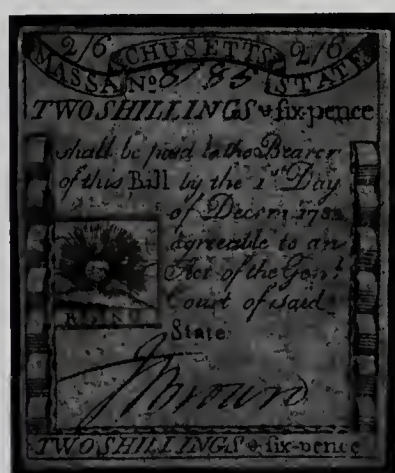 2/6 CHUSETTS 2/6
MASSA Nº 8185 STATE
TWO SHILLINGS & six-pence
shall be paid to the Bearer
of this Bill by the 1st Day
of Decem 1782
agreeable to an
Act of the Genl
Court of said
State
RISING
TWO SHILLINGS & six-pence